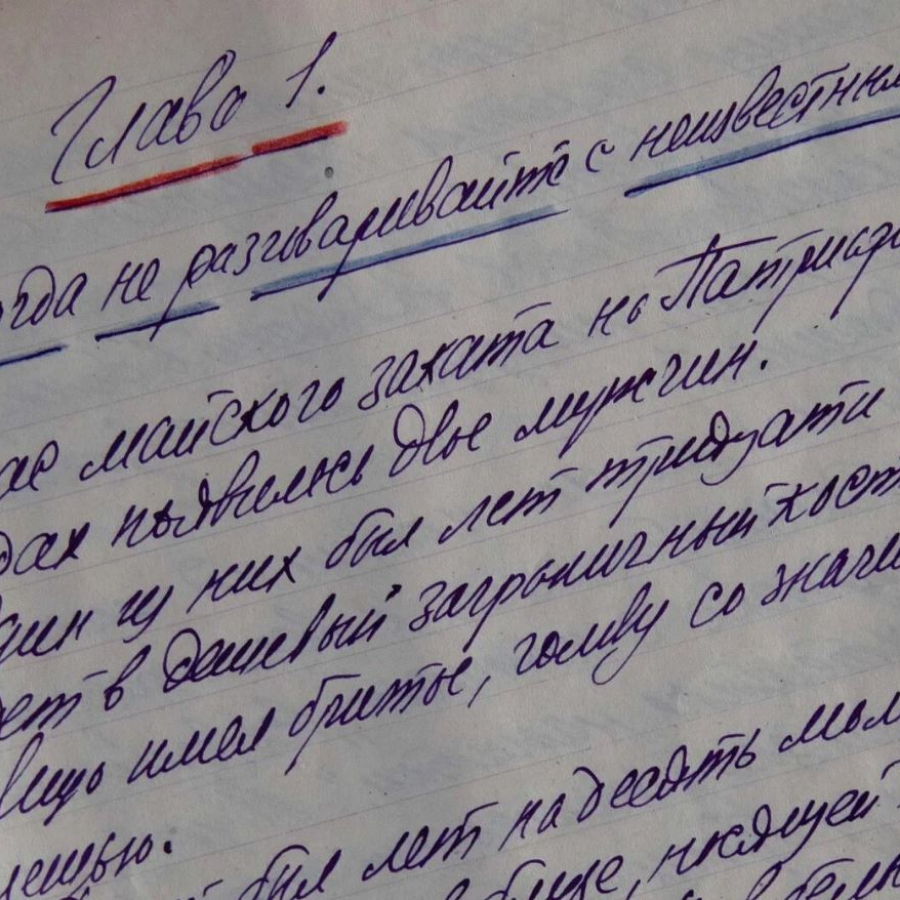 Глава 1.
огда не разговаривайте с неизвестным
ас майского заката на Патриарш
дах появилось двое мужчин.
дин из них был лет тридцати
ет в дешевый заграничный кост
лицо имел бритое, голову со значи
лешью.
был лет на десять мол
в блузе, носящей